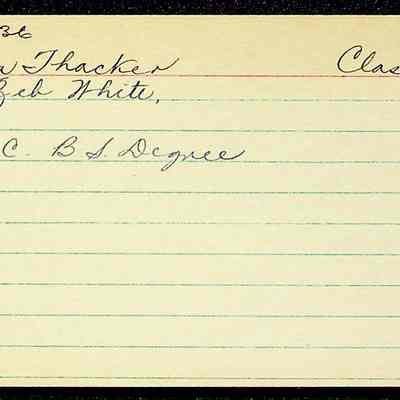 36
Thacker Clas
Zeb White,
C. B S. Degree